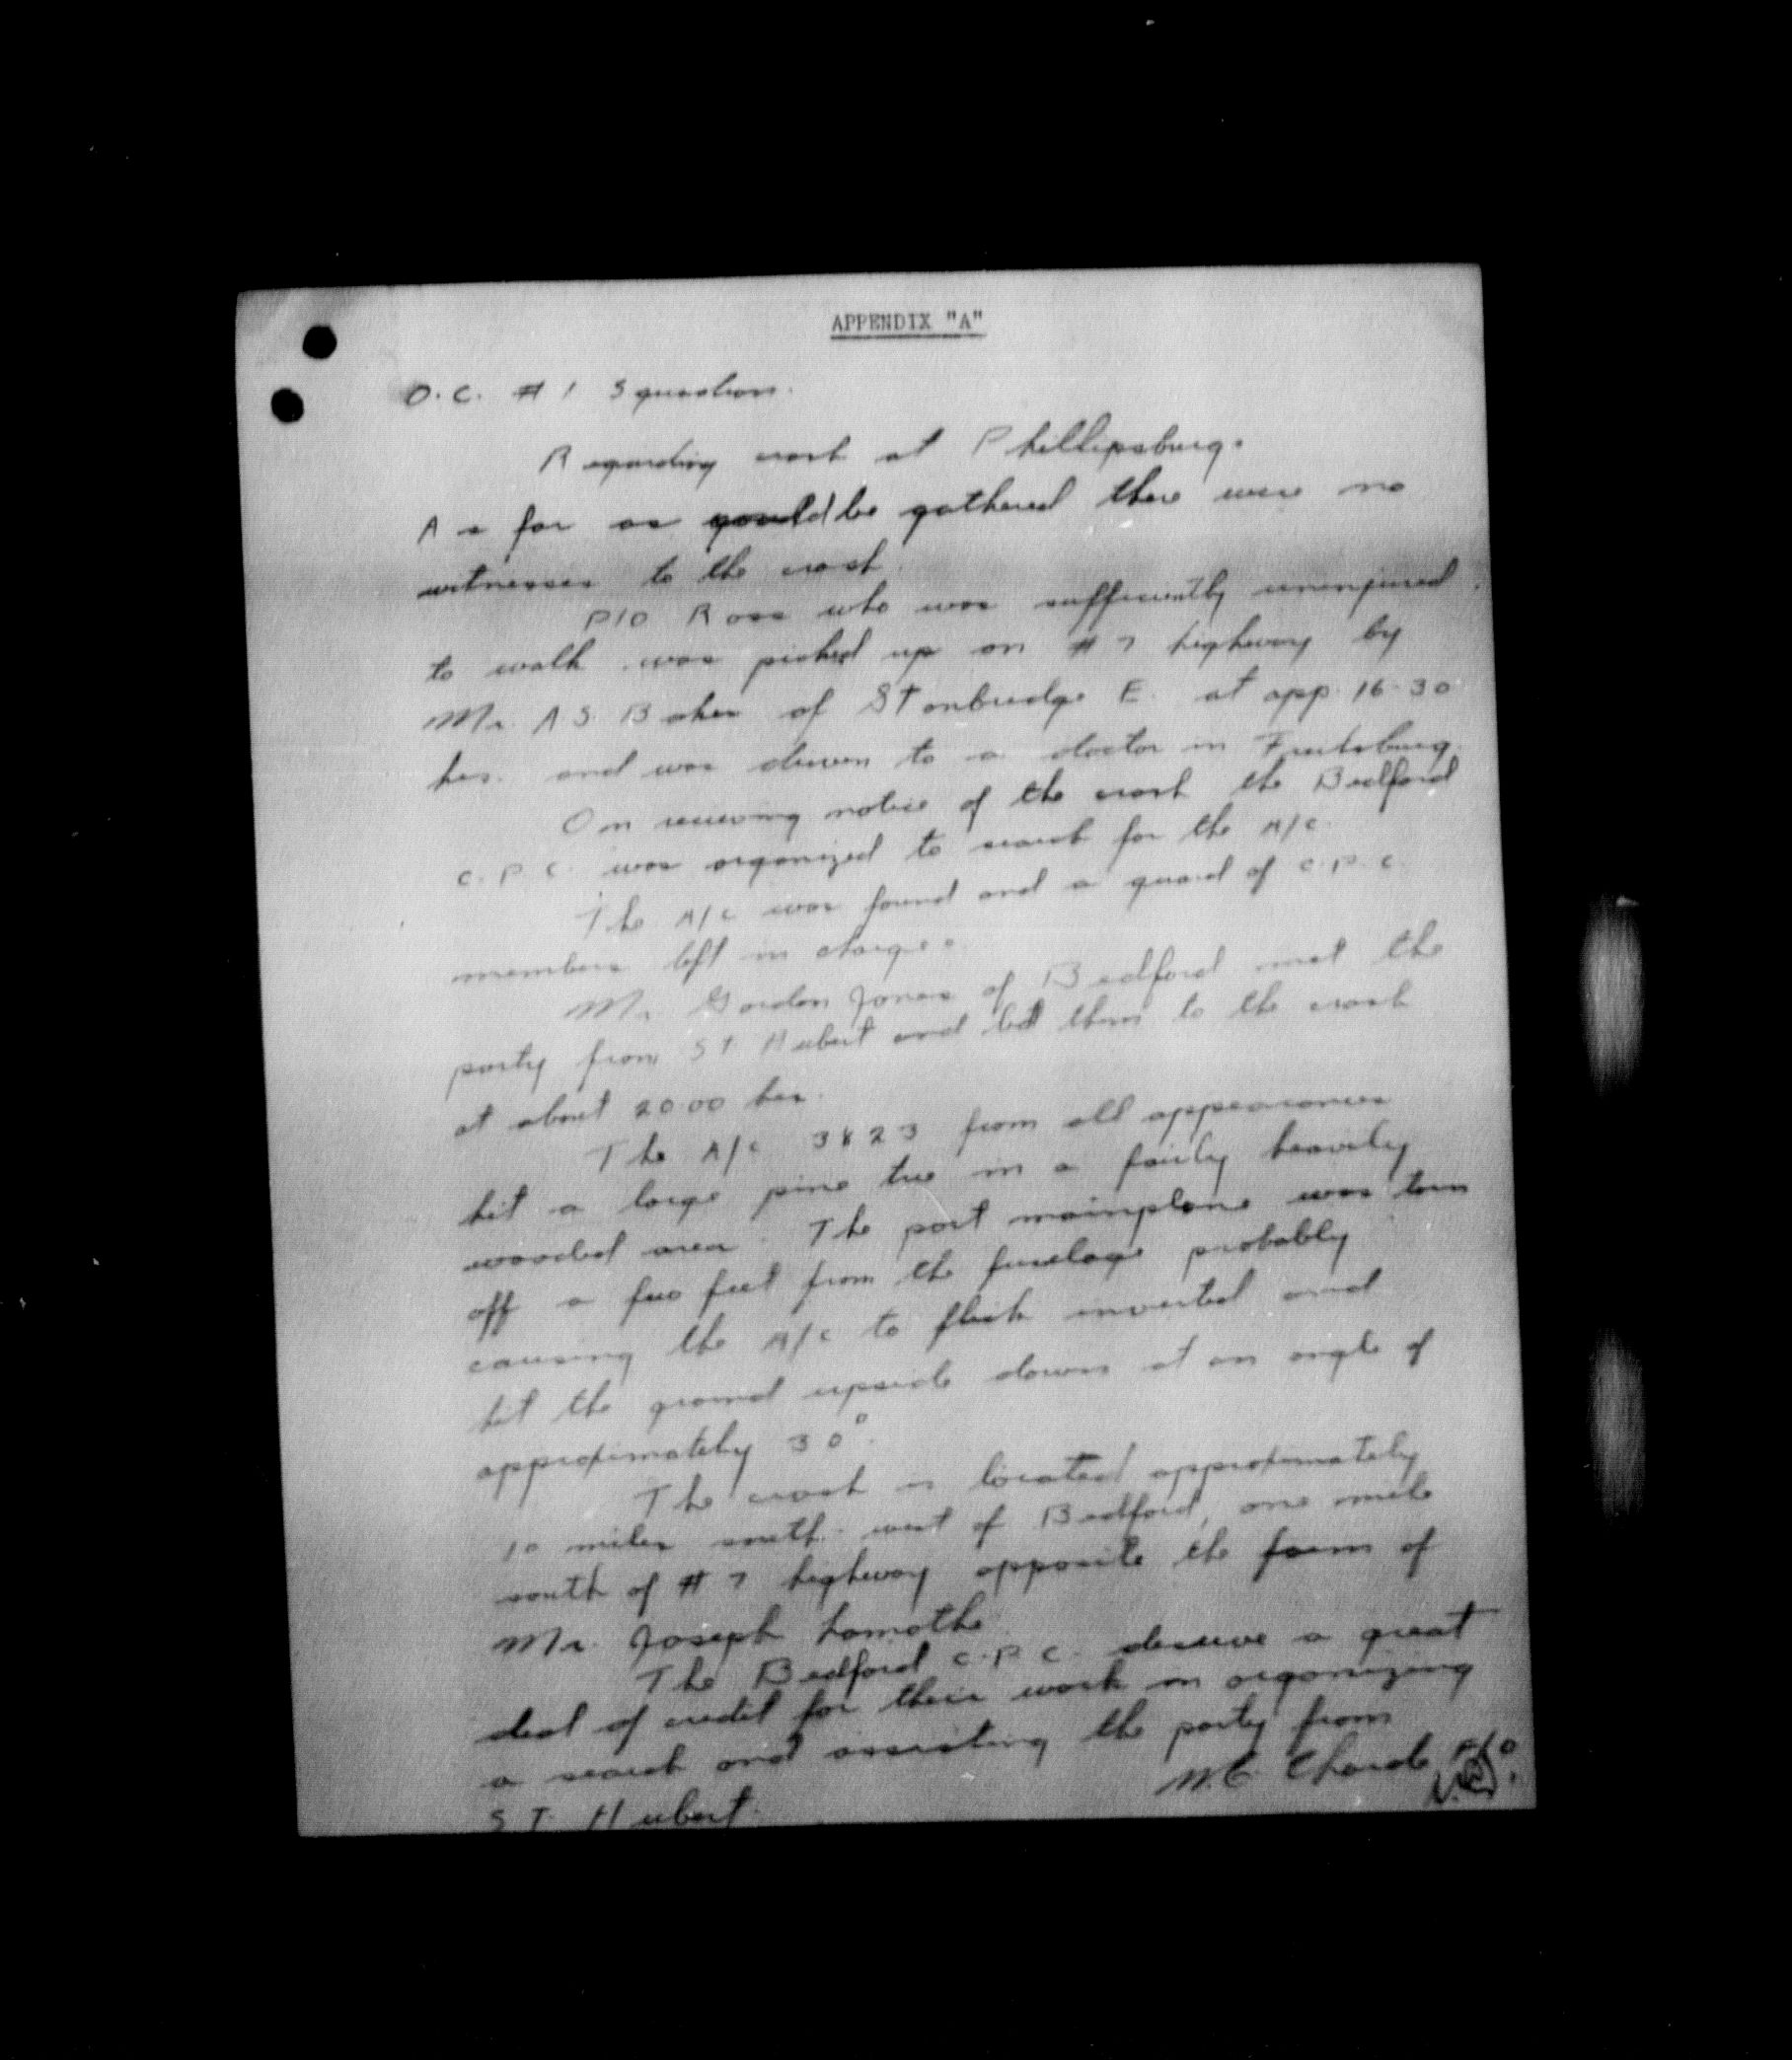 APPENDIX "A"
O.C. # 1 Squadron.
Regarding crash at Phillipsburg.
As far as could be gathered there were no
witnesses to the crash.
P/O Ross who was sufficiently uninjured
to walk was picked up on # 7 highway by
Mr. A S. Baker of Stanbridge E. at app. 16.30
hrs. and was driven to a doctor in
On receiving notice of the crash the Bedford
C.P.C. was organized to search for the A/C.
The A/C was found and a guard of C.P.C.
members left in charge.
Mr. Gordon Jones of Bedford met the
party from ST. Hubert and led them to the crash
at about 20.00 hrs.
The A/C 3823 from all appearances
hit a large pine tree in a fairly heavily
wooded area. The port mainplane was torn
off a few feet from the fuselage probably
causing the A/C to flick inverted and
hit the ground upside down at an angle of
approximately 30°.
The crash is located approximately
10 miles south-west of Bedford, one mile
south of # 7 highway opposite the farm of
Mr. Joseph Lamothe.
The Bedford C.P.C. deserve a great
deal of credit for their work in organizing
a search and assisting the party from
ST. Hubert.